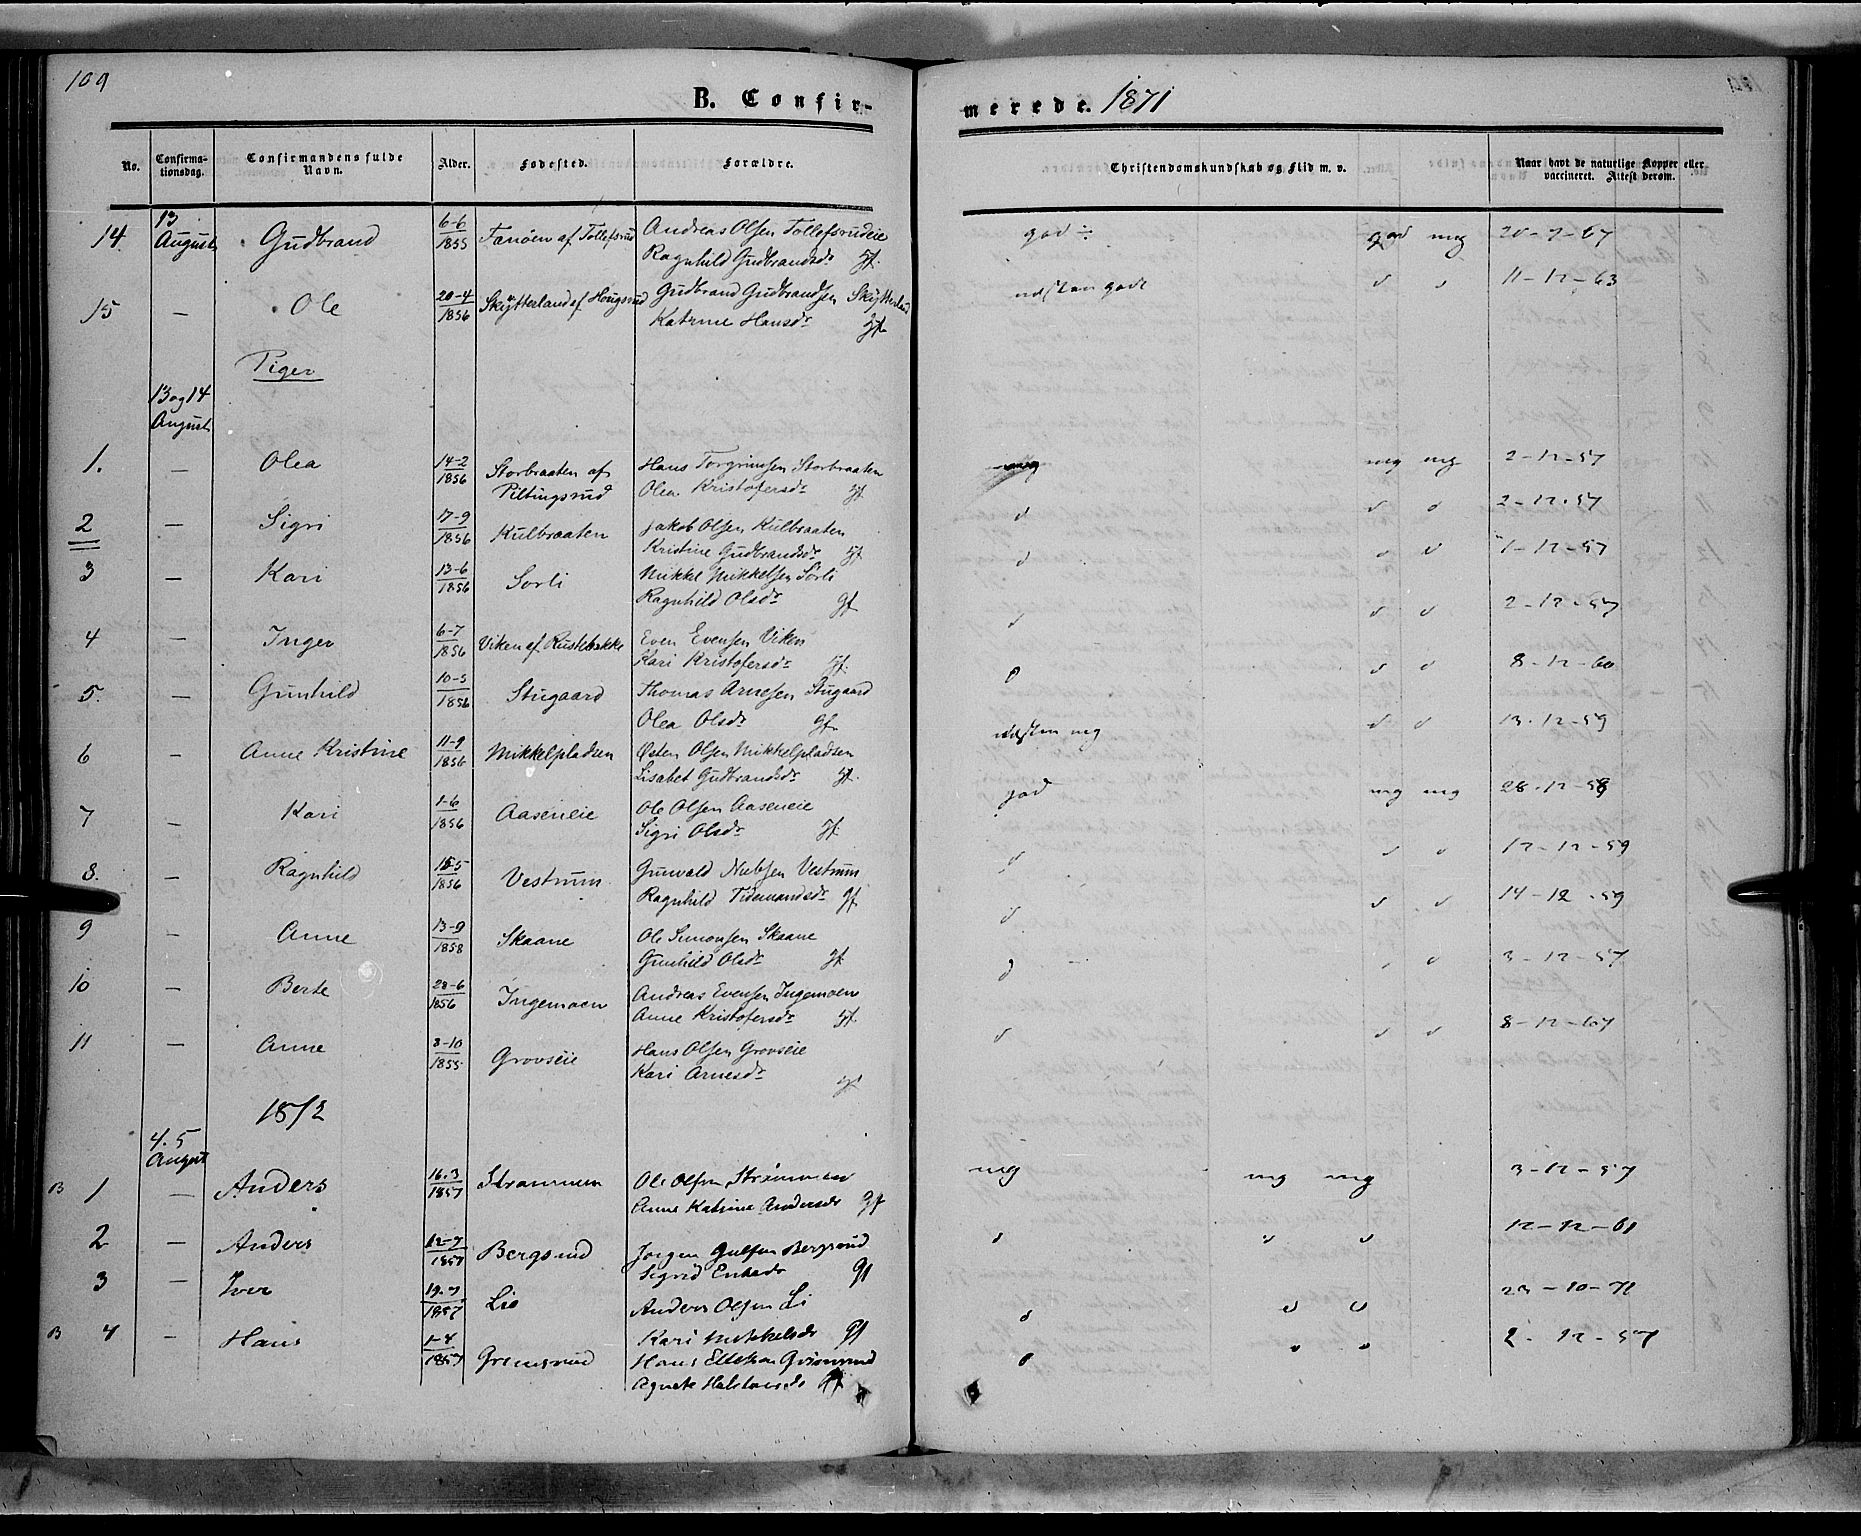 109
B. Confir-
merede. 1871
No.
Confirma-
tionsdag.
Confirmandens fulde
Navn.
Alder.
Fødested.
Forældre.
Christendomskundskab og Flid m. v.
Naar havt de naturlige Kopper eller
vaccineret. Attest derom.
13
14. August Gudbrand 6-6 1855 Fanöen af Tollefsrud Andreas Olsen Tollefsrudeie
Ragnhild Gudbrandsdr gf. god ÷ god mg 20-7-67
15 — Ole 20-4 1856 Skÿtterland af Hougsrud Gudbrand Gudbrandsen Skÿtterland
Katrine Hansdr gf. næsten godt d d 11-12-63
Piger
13 og 14
August
1. — Olea 14-2 1856 Storbraaten af
Piltingsrud Hans Torgrimsen Storbraaten
Olea Kristofersdr gf. mg mg mg 2-12-57
2 — Sigri 17-9 1856 Kulbraaten Jakob Olsen Kulbraaten
Kristine Gudbrandsdr gf. d d d 2-12-57
3 — Kari 13-6 1856 Sorli Mikkel Mikkelsen Sörli
Ragnhild Olsdr gf d d d 1-12-57
4 — Inger 6-7 1856 Viken af Rustebakke Even Evensen Viken
Kari Kristofersdr gf. d d d 2-12-57
5. — Gunhild 10-5 1856 Stugaard Thomas Arnesen Stugaard
Olea Olsdr gf. d d d 8-12-60
6 — Anne Kristine 11-9 1856 Mikkelpladsen Østen Olsen Mikkelpladsen
Lisabet Gudbrandsdr gf. næsten mg d d 13-12-59
7 — Kari 1-6 1856 Aaseneie Ole Olsen Aaseneie
Sigri Olsdr gf. god mg mg 28-12-58
8. — Ragnhild 15-5 1856 Vestrum Gunvald Nubsen Vestrum
Ragnhild Tidemandsdr gf d d d 12-12-59
9 — Anne 13-9 1858 Skaane Ole Simonsen Skaane
Gunhild Olsdr gf. d d d 14-12-59
10 — Berte 28-6 1856 Ingemoen Andreas Evensen Ingemoen
Anne Kristofersdr gf. d d 3-12-57
11 — Anne 8-10 1855 Grovseie Hans Olsen Grovseie
Kari Arnesdr gf d d d 8-12-67
1872
4. 5
August
B 1 — Anders 16.3 1857 Strømmen Ole Olsen Strømmen
Anne Katrine Andersdr gf mg mg mg 3-12-57
2 — Anders 12-7 1857 Bergsrud Jørgen Gulsen Bergsrud
Sigrid gf d d d 12-12-61
3 — Iver 19.7 1857 Lie Anders Olsen Li
Kari Mikkelsdr gf d d d 23-10-71
B 4 — Hans 1-4 1857 Grimsrud Hans Grimsrud
Agnete gf d d d 2-12-57